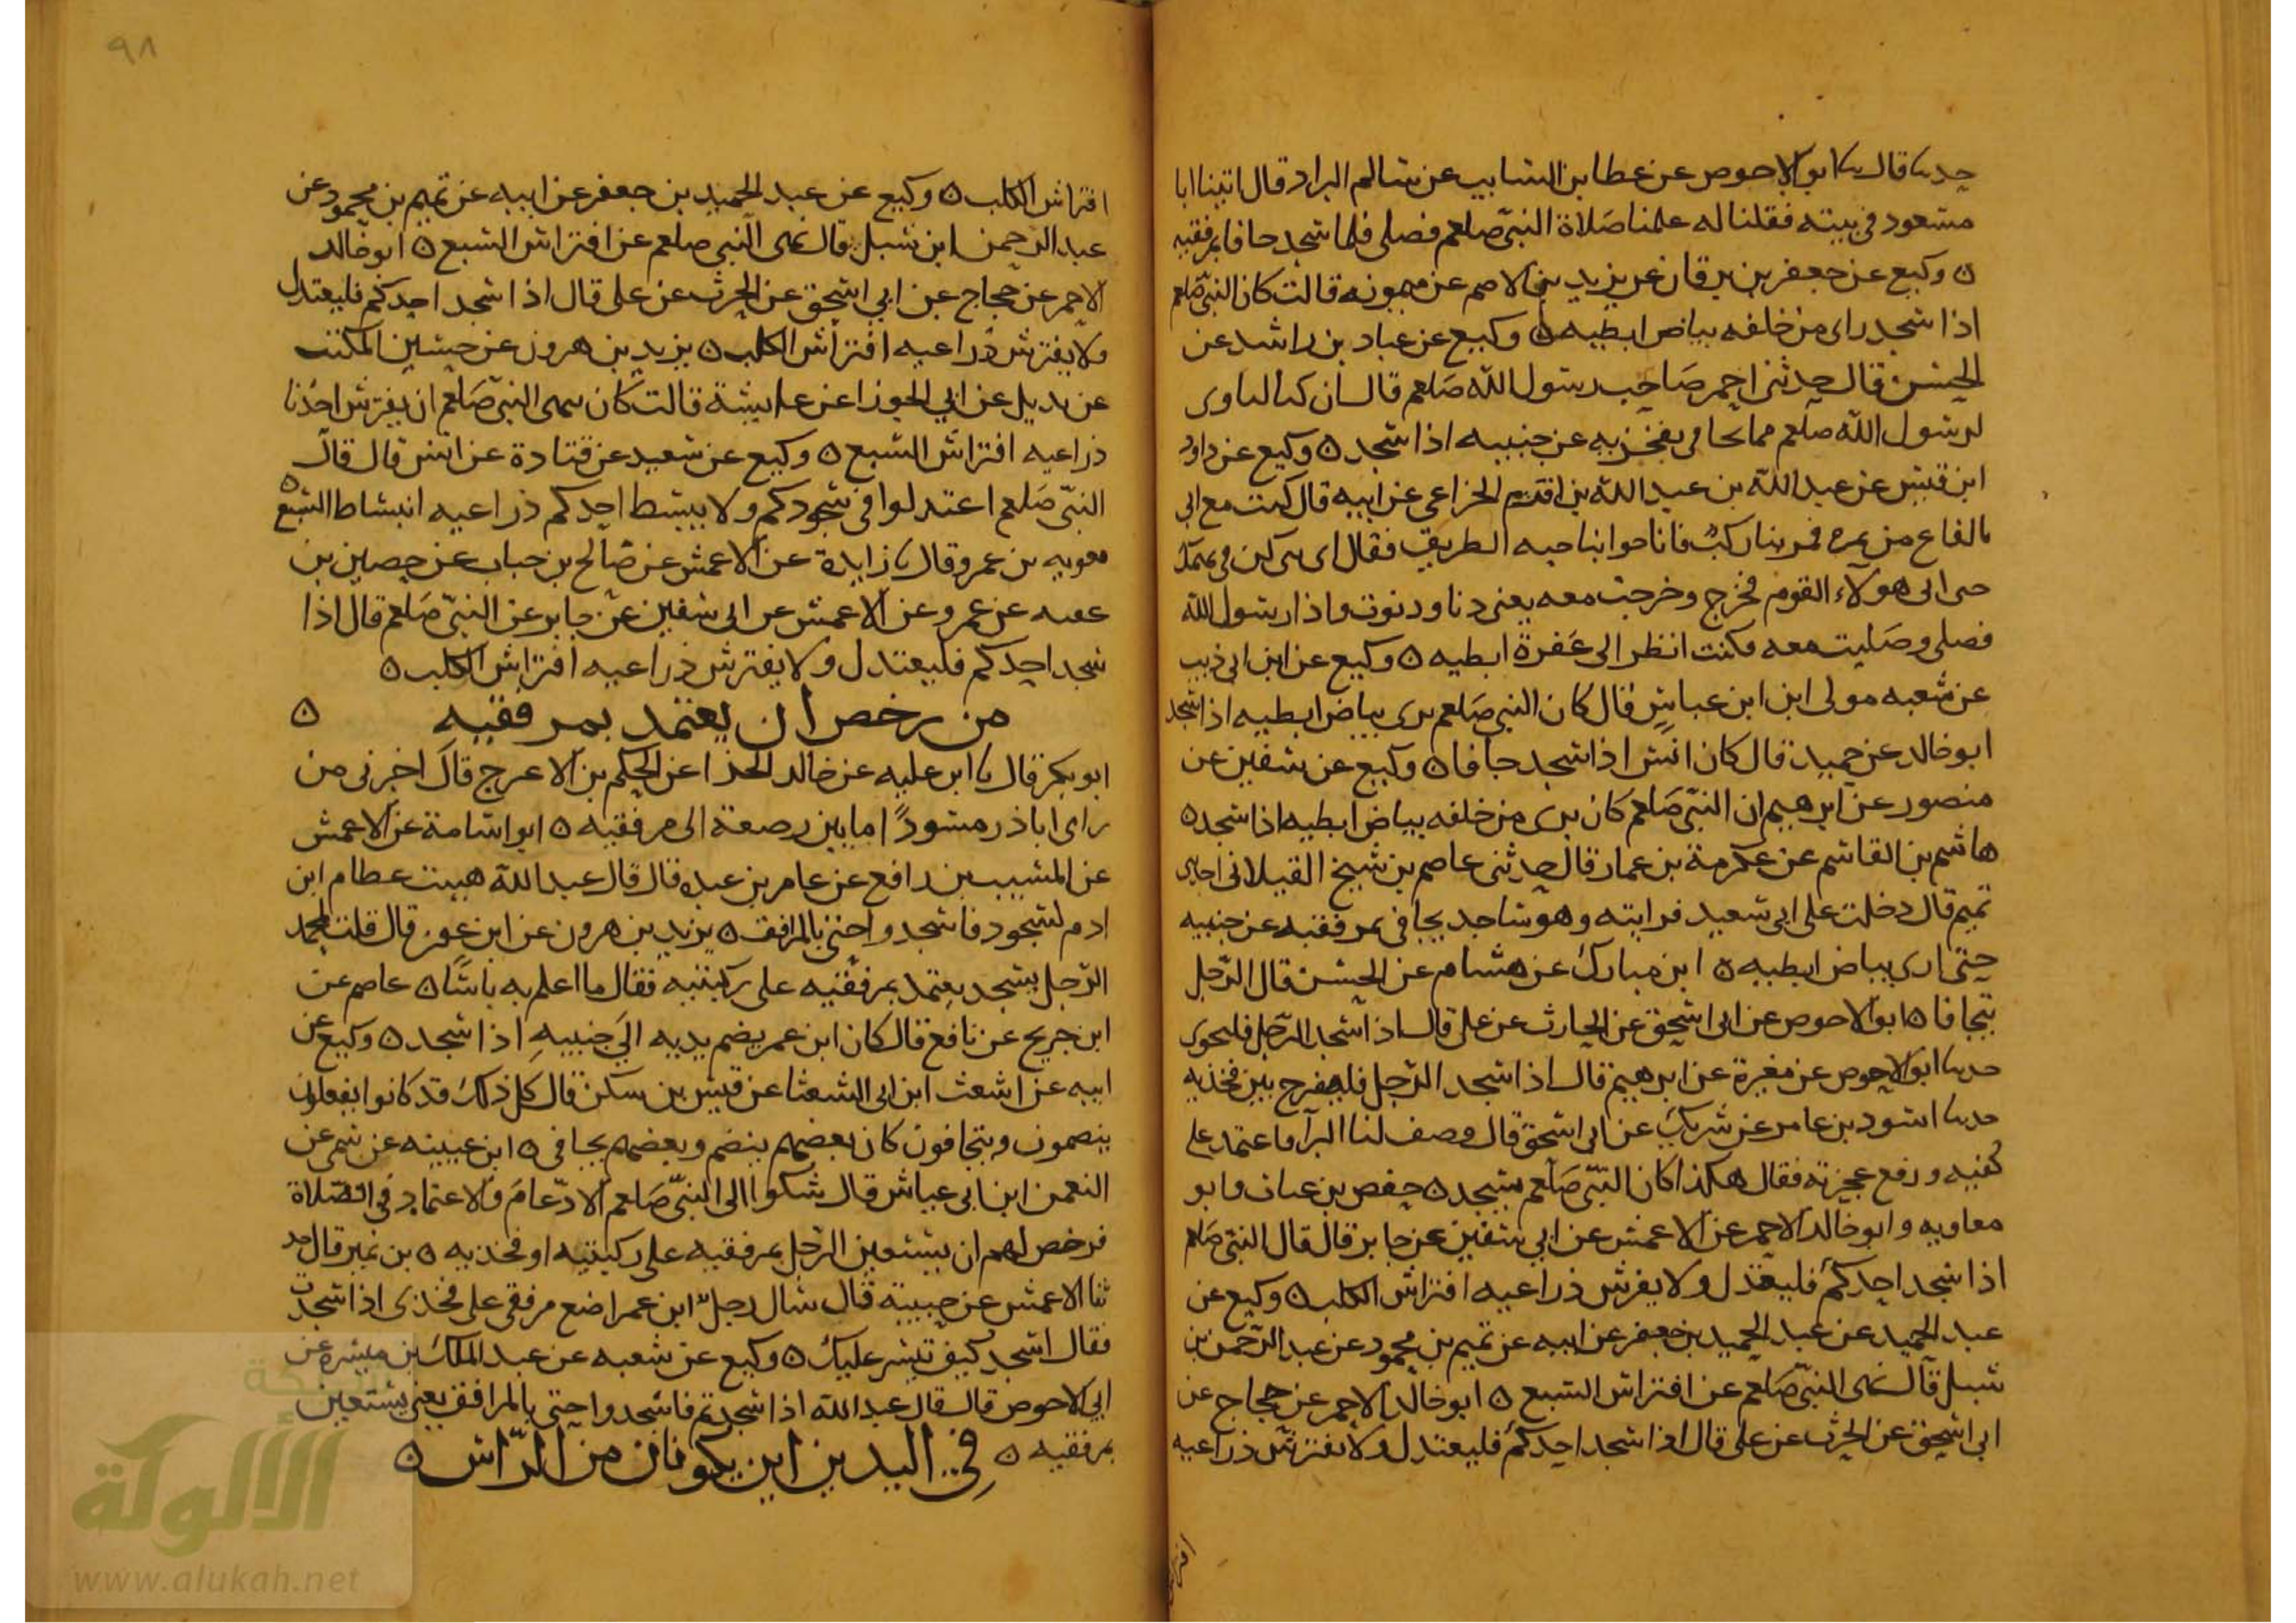 حدثنا قال حدثنا ابو الاحوص عن عطا بن السايب عن سالم البراد قال اتينا ابا
مسعود في بيته فقلنا له علمنا صلاة النبي صلعم فصلى فلما سجد جافا بمرفقيه
ه وكيع عن جعفر بن برقان عن يزيد بن الاصم عن ميمونه قالت كان النبي صلعم
اذا سجد راى من خلفه بياض ابطيه ه وكيع عن عباد بن راشد عن
الحسن قال حدثنى احمر صاحب رسول الله صلعم قال ان كنا لناوى
لرسول الله صلعم مما يجافى بفخذيه عن جنبيه اذا سجد ه وكيع عن داود
ابن قيس عن عبد الله بن عبد الله بن اقرم الخزاعى عن ابيه قال كنت مع ابي
بالقاع من نمره فمر بنا ركب فاناخوا بناحيه الطريق فقال اى بنى كن في بهمك
حتى اتى هولاء القوم فخرج وخرجت معه يعنى دنا ودنوت واذا رسول الله
فصلى وصليت معه فكنت انظر الى عفرة ابطيه ه وكيع عن ابن ابي ذيب
عن شعبه مولى ابن ابن عباس قال كان النبي صلعم يرى بياض ابطيه اذا سجد
ابو خالد عن حميد قال كان انس اذا سجد جافا ه وكيع عن سفين عن
منصور عن ابرهيم ان النبي صلعم كان يرى من خلفه بياض ابطيه اذا سجد ه
هاشم بن القاسم عن عكرمة بن عمار قال حدثنى عاصم بن شيخ الغيلانى احد بنى
تميم قال دخلت على ابي سعيد فرايته وهو ساجد يجافى بمرفقيه عن جنبيه
حتى ارى بياض ابطيه ه ابن مبارك عن هشام عن الحسن قال الرجل
يتجافا ه ابو الاحوص عن ابي اسحق عن الحارث عن على قال اذا سجد الرجل فليخوى
حدثنا ابو الاحوص عن مغيرة عن ابرهيم قال اذا سجد الرجل فليفرج بين فخذيه
حدثنا اسود بن عامر عن شريك عن ابي اسحق قال وصف لنا البرآ فاعتمد على
كفيه ورفع عجيزته فقال هكذا كان النبي صلعم يسجد ه حفص بن غياث وابو
معاويه وابو خالد الاحمر عن الاعمش عن ابي سفين عن جابر قال قال النبي صلعم
اذا سجد احدكم فليعتدل ولا يفرش ذراعيه افتراش الكلب ه وكيع عن
عبد الحميد عن عبد الحميد بن جعفر عن ابيه عن تميم بن محمود عن عبد الرحمن بن
شبل قال نهى النبي صلعم عن افتراش السبع ه ابو خالد الاحمر عن حجاج عن
ابي اسحق عن الحرث عن على قال اذا سجد احدكم فليعتدل ولا يفترش ذراعيه
٩٨
افتراش الكلب ه وكيع عن عبد الحميد بن جعفر عن ابيه عن تميم بن محمود عن
عبد الرحمن ابن شبل قال نهى النبي صلعم عن افتراش السبع ه ابو خالد
الاحمر عن حجاج عن ابي اسحق عن الحرث عن على قال اذا سجد احدكم فليعتدل
ولا يفترش ذراعيه افتراش الكلب ه يزيد بن هرون عن حسين المكتب
عن بديل عن ابي الجوزا عن عايشة قالت كان ينهى النبي صلعم ان يفترش احدنا
ذراعيه افتراش السبع ه وكيع عن سعيد عن قتادة عن انس قال قال
النبي صلعم اعتدلوا في سجودكم ولا يبسط احدكم ذراعيه انبساط السبع ه
معويه بن عمرو قال نا زايدة عن الاعمش عن صالح بن خباب عن حصين بن
عقبه عن عمر وعن الاعمش عن ابي سفين عن جابر عن النبي صلعم قال اذا
سجد احدكم فليعتدل ولا يفترش ذراعيه افتراش الكلب ه
من رخص ان يعتمد بمرفقيه ه
ابو بكر قال نا ابن عليه عن خالد الحذا عن الحكم بن الاعرج قال اخبرنى من
راى اباذر مسودًا ما بين رصغه الى مرفقيه ه ابو اسامة عن الاعمش
عن المسيب بن رافع عن عامر بن عبده قال قال عبد الله هييت عظام ابن
ادم لسجود فاسجدوا حتى بالمرافق ه يزيد بن هرون عن ابن عون قال قلت لمحمد
الرجل يسجد يعتمد بمرفقيه على ركبتيه فقال ما اعلم به باسًا ه عاصم عن
ابن جريج عن نافع قال كان ابن عمر يضم يديه الى جنبيه اذا سجد ه وكيع عن
ابيه عن اشعث ابن ابي الشعثا عن قيس بن سكن قال كل ذلك قد كانوا يفعلون
ينضمون ويتجافون كان بعضهم ينضم وبعضهم يجافى ه ابن عيينه عن سمى عن
النعمن ابن ابي عياش قال شكوا الى النبي صلعم الادّعام والاعتماد في الصلاة
فرخص لهم ان يستعين الرجل بمرفقيه على ركبتيه او فخذيه ه بن نمير قال حد
ثنا الاعمش عن حبيبة قال سال رجل ابن عمر اضع مرفقى على فخذى اذا سجدت
فقال اسجد كيف تيسر عليك ه وكيع عن شعبه عن عبد الملك بن ميسره عن
ابي الاحوص قال قال عبد الله اذا سجدتم فاسجدوا حتى بالمرافق يعنى يستعين
بمرفقيه ه في اليدين اين يكونان من الراس ه
الألوكة
www.alukah.net